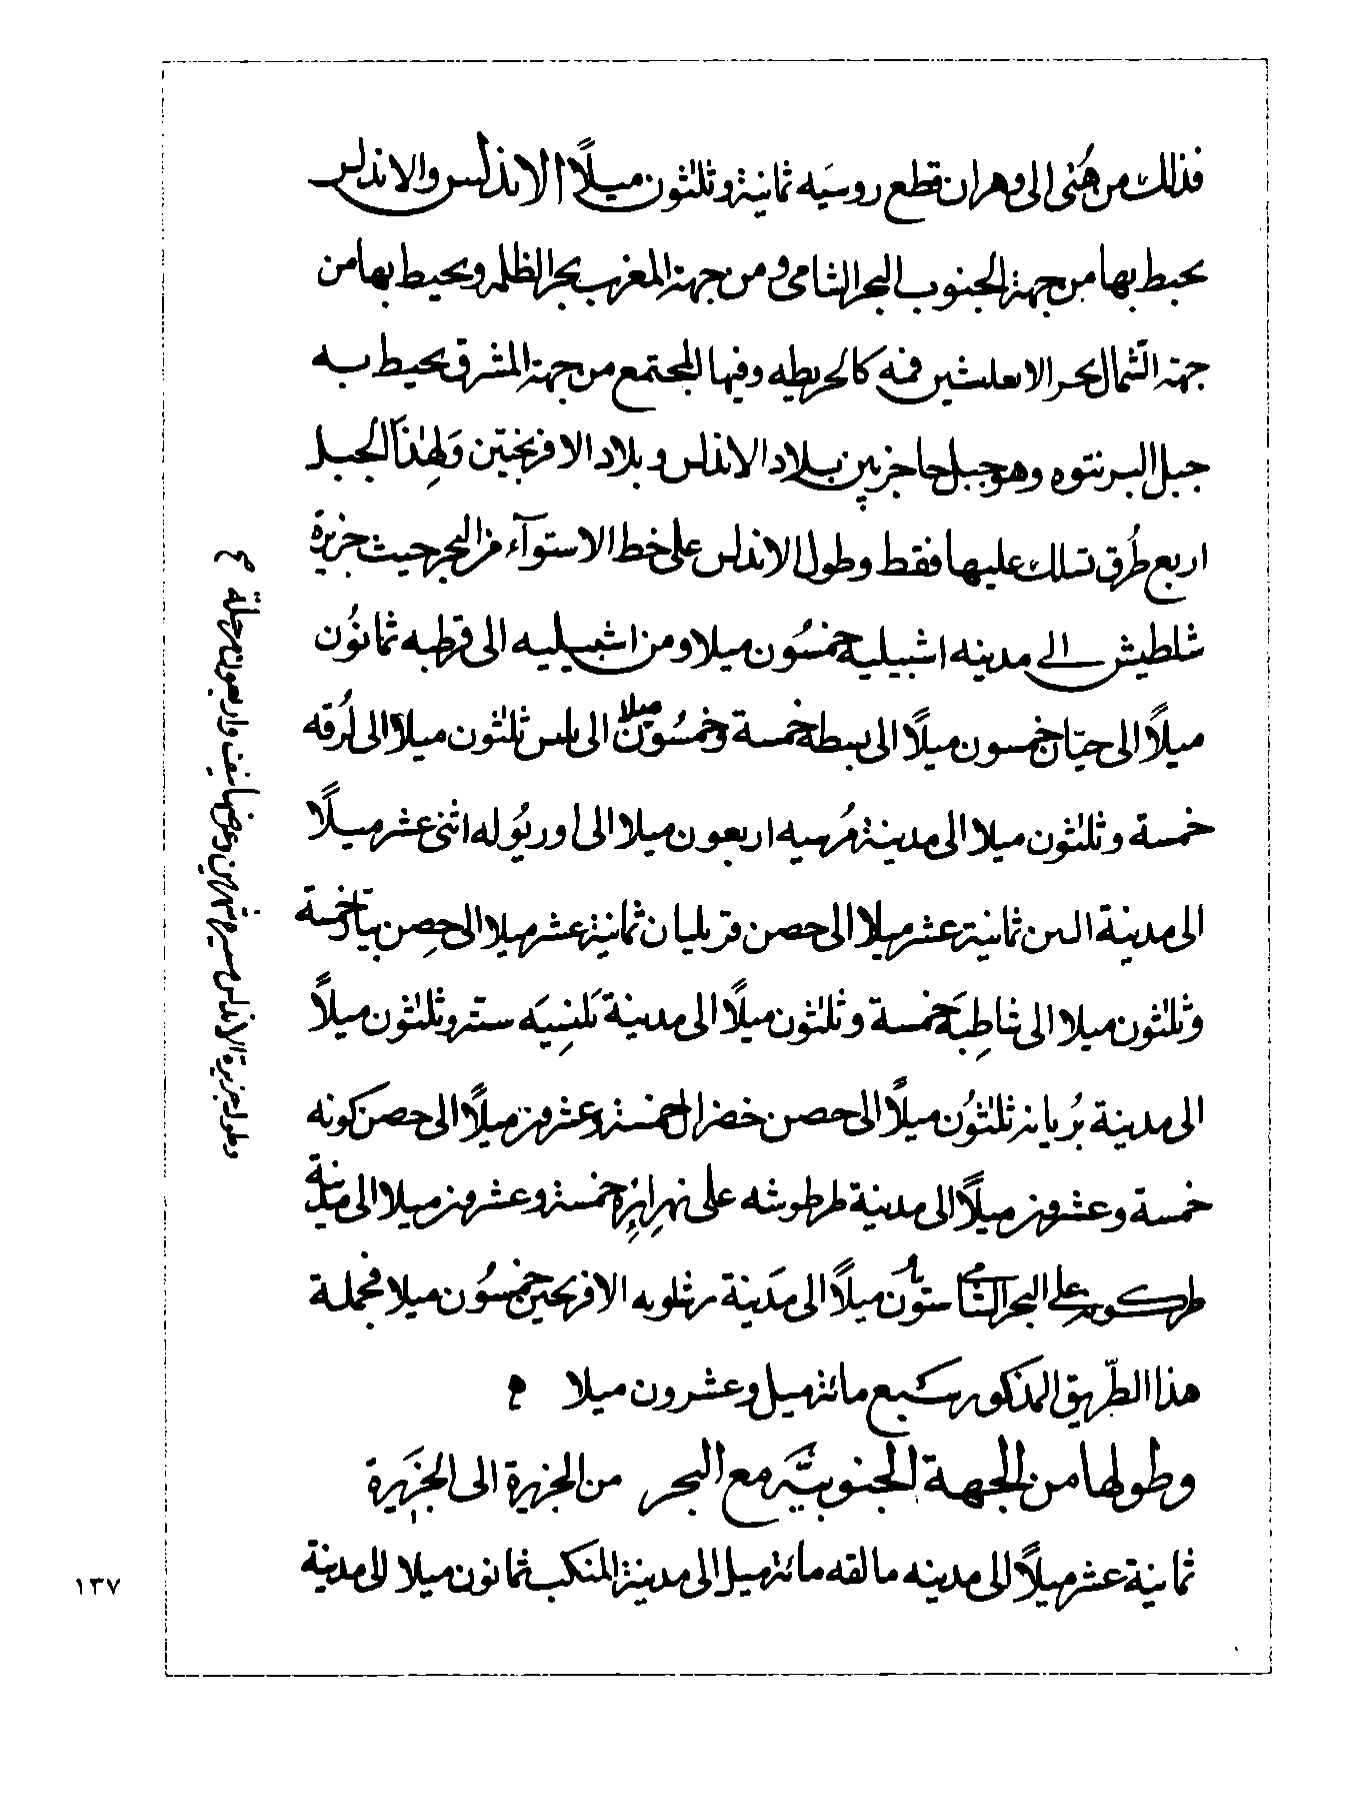 فذلك من هُنى الى وهران قطع روسيَه ثمانية وثلثون ميلاً الاندلس والاندلس
يحيط بها من جهة الجنوب البحر الشامى ومن جهة المغرب بحر الظلمه ويحيط بها من
جهة الشمال بحر الانقلشين فمه كالخريطه وفيها المجتمع من جهة المشرق يحيط به
جبل البرنتوه وهو جبل حاجز بين بلاد الاندلس وبلاد الافرنجتين وَلِهٰذَا الجبل
اربع طُرق تسلك عليها فقط وطول الاندلس على خط الاستوآء من البحر حيث جزيرة
شلطيش الى مدينه اشبيلية خمسُون ميلا ومن اشبيليه الى قرطبه ثمانوُن
ميلاً الى جيّان خمسون ميلاً الى بسطه خمسة وخمسُون ميلا الى بلس ثلثون ميلا الى لُرقه
خمسة وثلثون ميلا الى مدينة مُرسيه اربعون ميلا الى اوريُوله اثنى عشر ميلاً
الى مدينة الش ثمانية عشر ميلا الى حصن قربليان ثمانية عشر ميلا الى حِصن بياز خمسة
وثلثون ميلا الى شاطِبَة خمسة وثلثون ميلاً الى مدينة بَلنسِيَه ستة وثلثون ميلاً
الى مدينة بُريانة ثلثوُن ميلاً الى حصن خضرال خمسة وعشرون ميلاً الى حصن كونه
خمسة وعشرون ميلاً الى مدينة طرطوشه على نهر اِبرُه خمسة وعشرون ميلا الى مدينة
طركونه على البحر الشامى ستوُّن ميلاً الى مَدينة برشلونه الافرنجين خمسُون ميلا فجملة
هذا الطّريق المذكور سبع مائة ميل وعشرون ميلا
وطولها من الجهة الجنوبيَّه مع البحر من الجزيرة الى الجزَيرة
ثمانية عشر ميلاً الى مدينه مالقه مائة ميل الى مدينة المنكب ثمانون ميلا الى مدينة
وطول جزيرة الاندلس مسيرة شهرين وعرضها نيف واربعون مرحلة
١٣٧